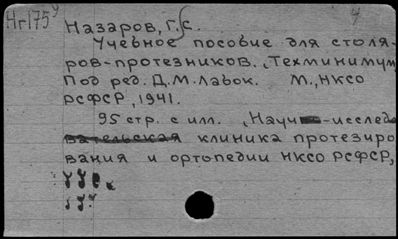 Нг175у
Назаров, Г. С.
Учебное пособие для столя-
ров-протезников. "Техминимум"
Под ред. Д.М. Лавок. М., НКСО
РСФСР, 1941.
95 стр. с илл. "Науч -исследо
вательская клиника протезиро
вания и ортопедии НКСО РСФСР,